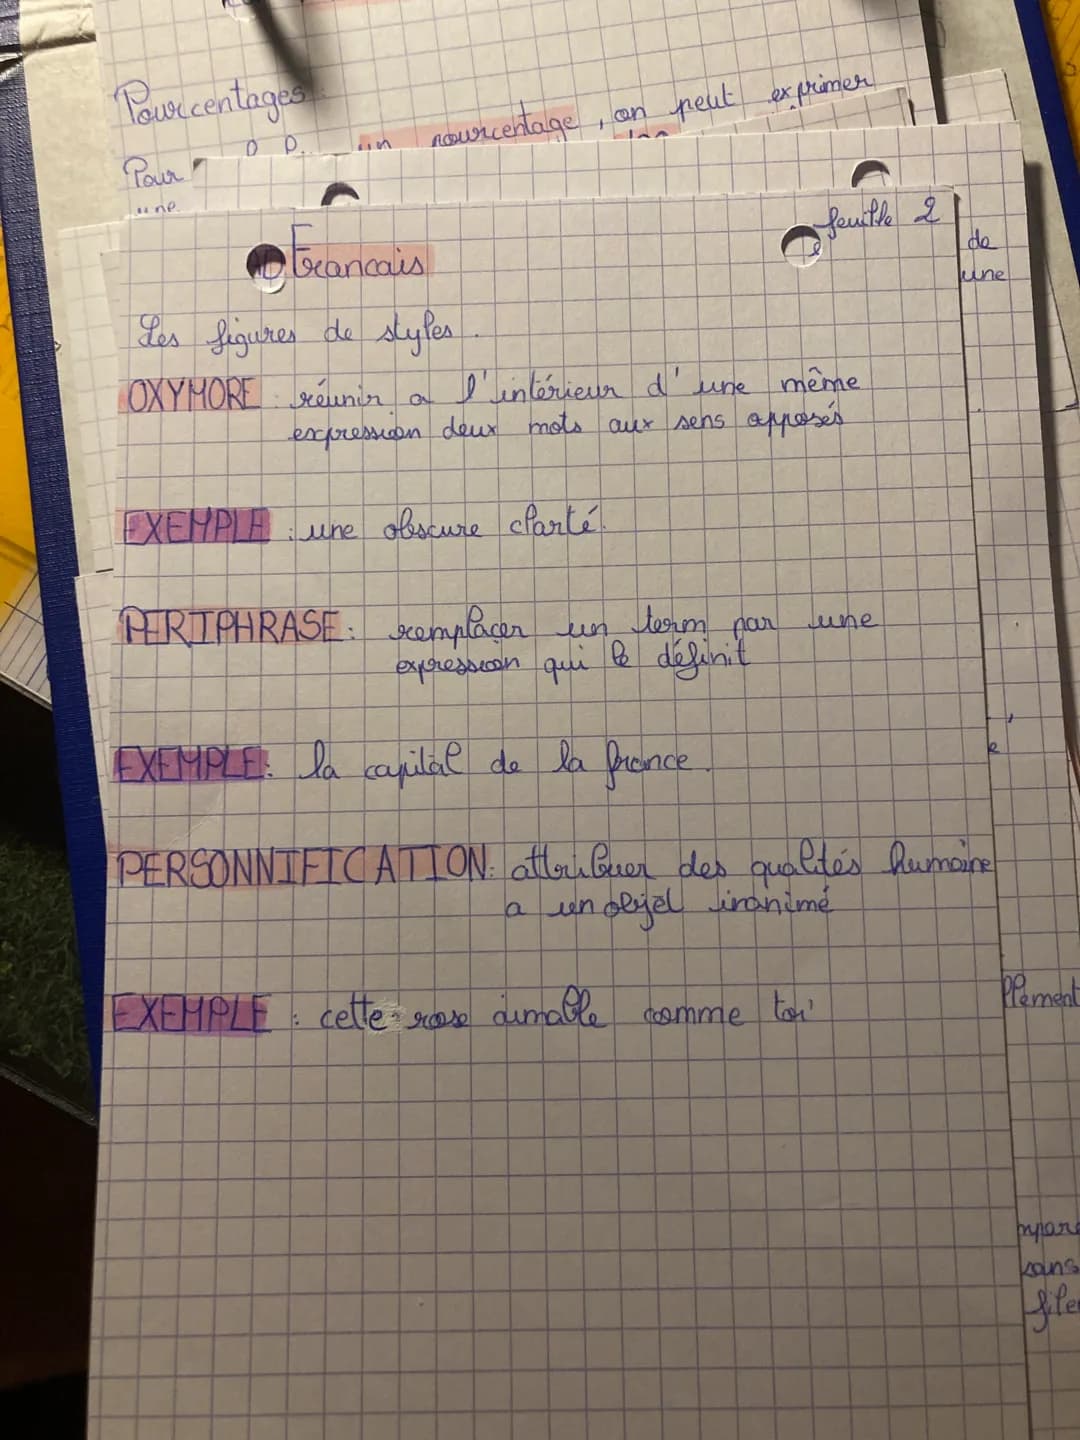 Pourcentages :
Pour
un pourcentage, on peut exprimer
une
feuille 2
Francais
de
une
Les figures de styles.
OXYMORE : réunir a l'intérieur d'une même
expression deux mots aux sens opposés
EXEMPLE : une obscure clarté.
PERIPHRASE : remplaçer un term par une
expression qui le définit
EXEMPLE : la capital de la france.
e
PERSONNIFICATION : attribuer des qualités humaine
a un objet inanimé
EXEMPLE : cette rose aimable comme toi
llement
mpare
sans
file